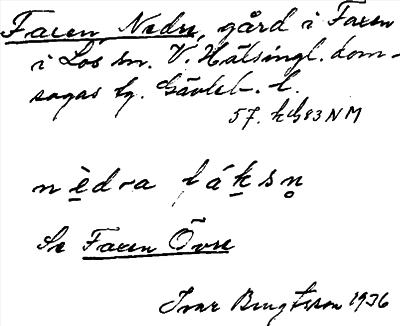 Faxen, Nedre, gård i Faxen
i Los sn. V. Hälsingl. dom-
sagas tg. Gävleb. l.
57.
nèdra fáksn̥
Se Faxen Övre
Ivar Bengtsson 1936